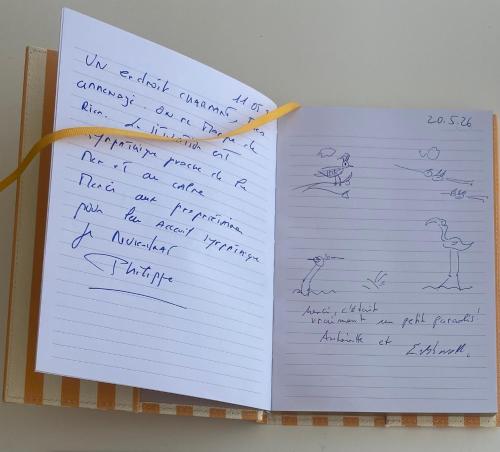 11.05.2
Un endroit charmant, bien
amenagé. On ne manque de
Rien. La situation est
sympathique proche de la
Mer et au calme
Merci aux propriétaires
pour leur accueil sympathique
Je Reviendrai
Philippe
20.5.26
Merci, c'était
vraiment un petit paradis!
et